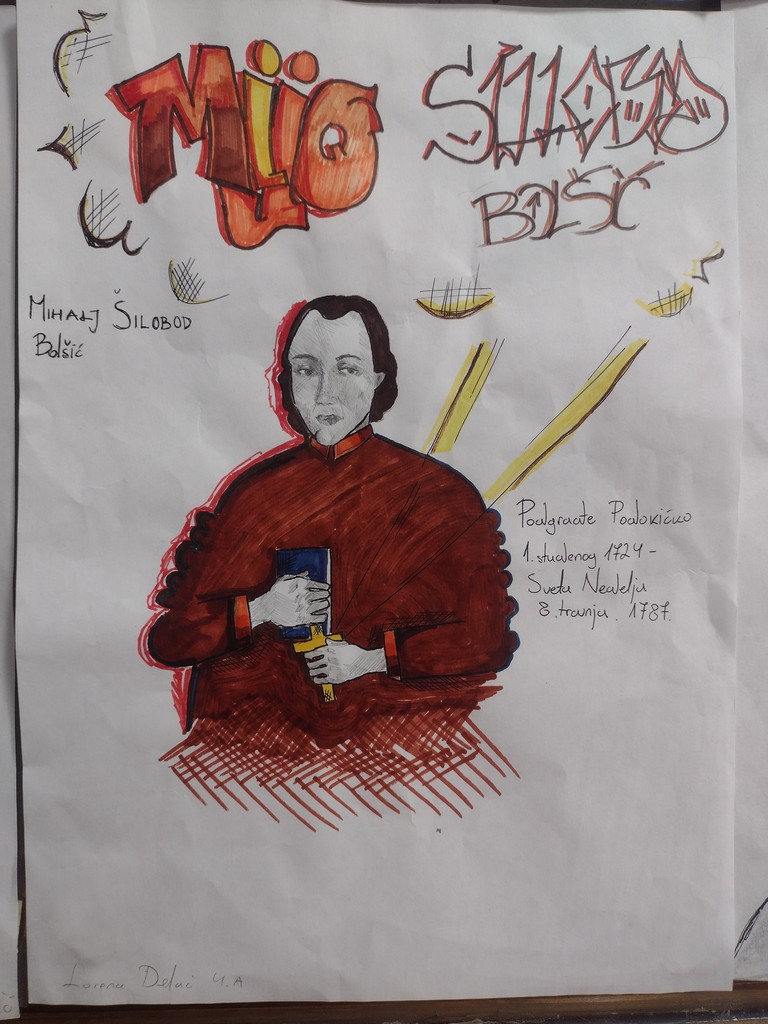 MIJO
SILOBOD
BOLŠIĆ
MIHALJ ŠILOBOD
Bolšić
Podgrađe Podokićko
1. studenog 1724 -
Sveta Nedelja
8. travnja. 1787.
Lorena Delač 4.A